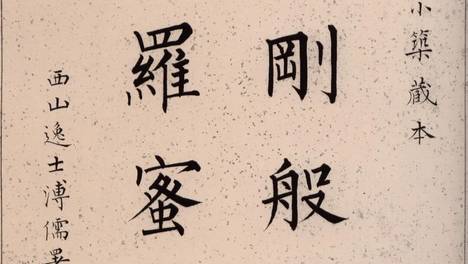 小築藏本
剛般
羅蜜
西山逸士溥儒署